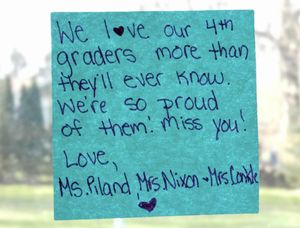 We l♥ve our 4th
graders more than
they'll ever know.
We're so proud
of them! Miss you!
Love,
Ms. Piland, Mrs. Nixon + Mrs. Conkle